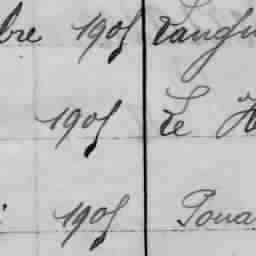 bre 1905 Langu
1905 Le H
1905 Poua